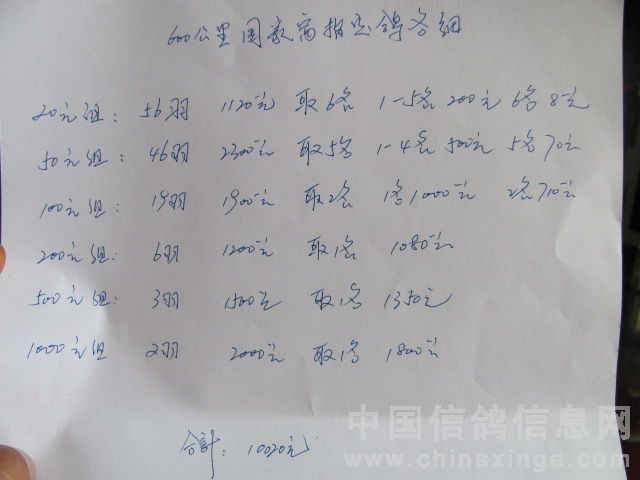 600公里国家赛指定鸽各组
20元组： 56羽 1120元 取6名 1-5名200元 6名8元
50元组： 46羽 2300元 取5名 1-4名500元 5名70元
100元组： 19羽 1900元 取2名 1名1000元 2名710元
200元组： 6羽 1200元 取1名 1080元
500元组： 3羽 1500元 取1名 1350元
1000元组 2羽 2000元 取1名 1800元
合计： 10020元
中国信鸽信息网
www.chinaxinge.com